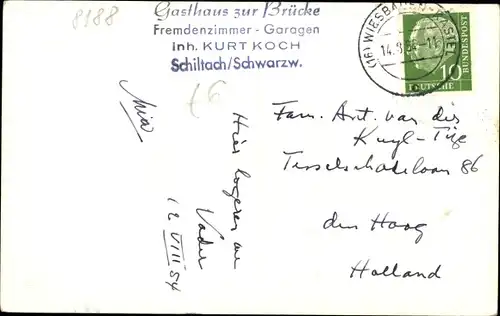 8188
Gasthaus zur Brücke
Fremdenzimmer - Garagen
Inh. KURT KOCH
Schiltach/Schwarzw.
(16) WIESBADEN
14.8.54-11
10
DEUTSCHE
BUNDESPOST
Mia
Hier logeren we
Vader
12 VIII 54
Fam. Ant. van der
Kuyl-Tije
Tesselschadelaan 86
den Haag
Holland